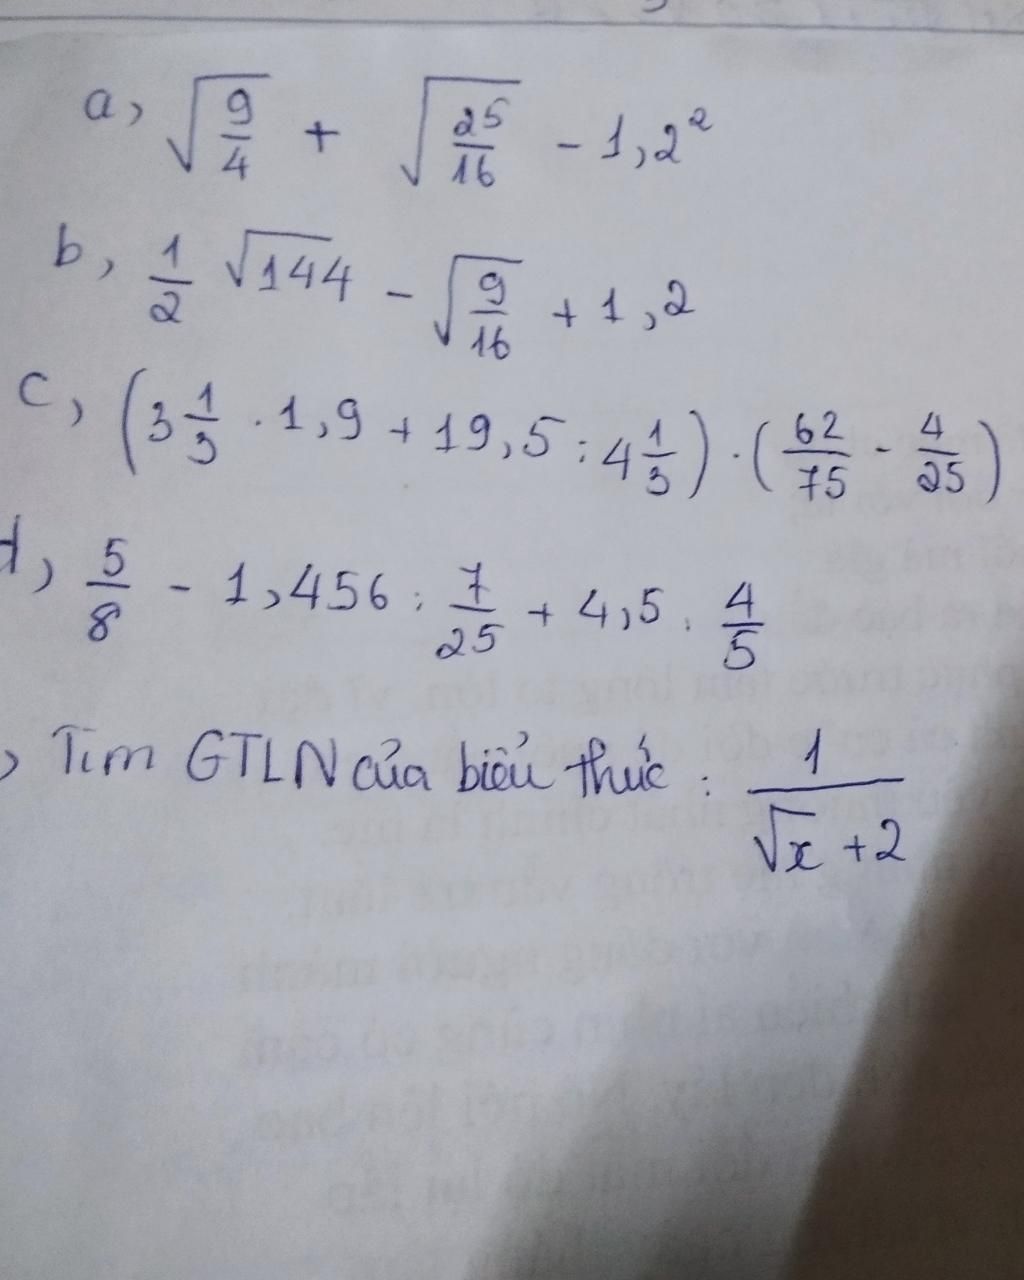 a, √(9/4) + √(25/16) - 1,2²
b, 1/2 √144 - √(9/16) + 1,2
c, (3 1/3 . 1,9 + 19,5 : 4 1/3) . (62/75 - 4/25)
d, 5/8 - 1,456 : 7/25 + 4,5 . 4/5
, Tìm GTLN của biểu thức : 1/(√x + 2)